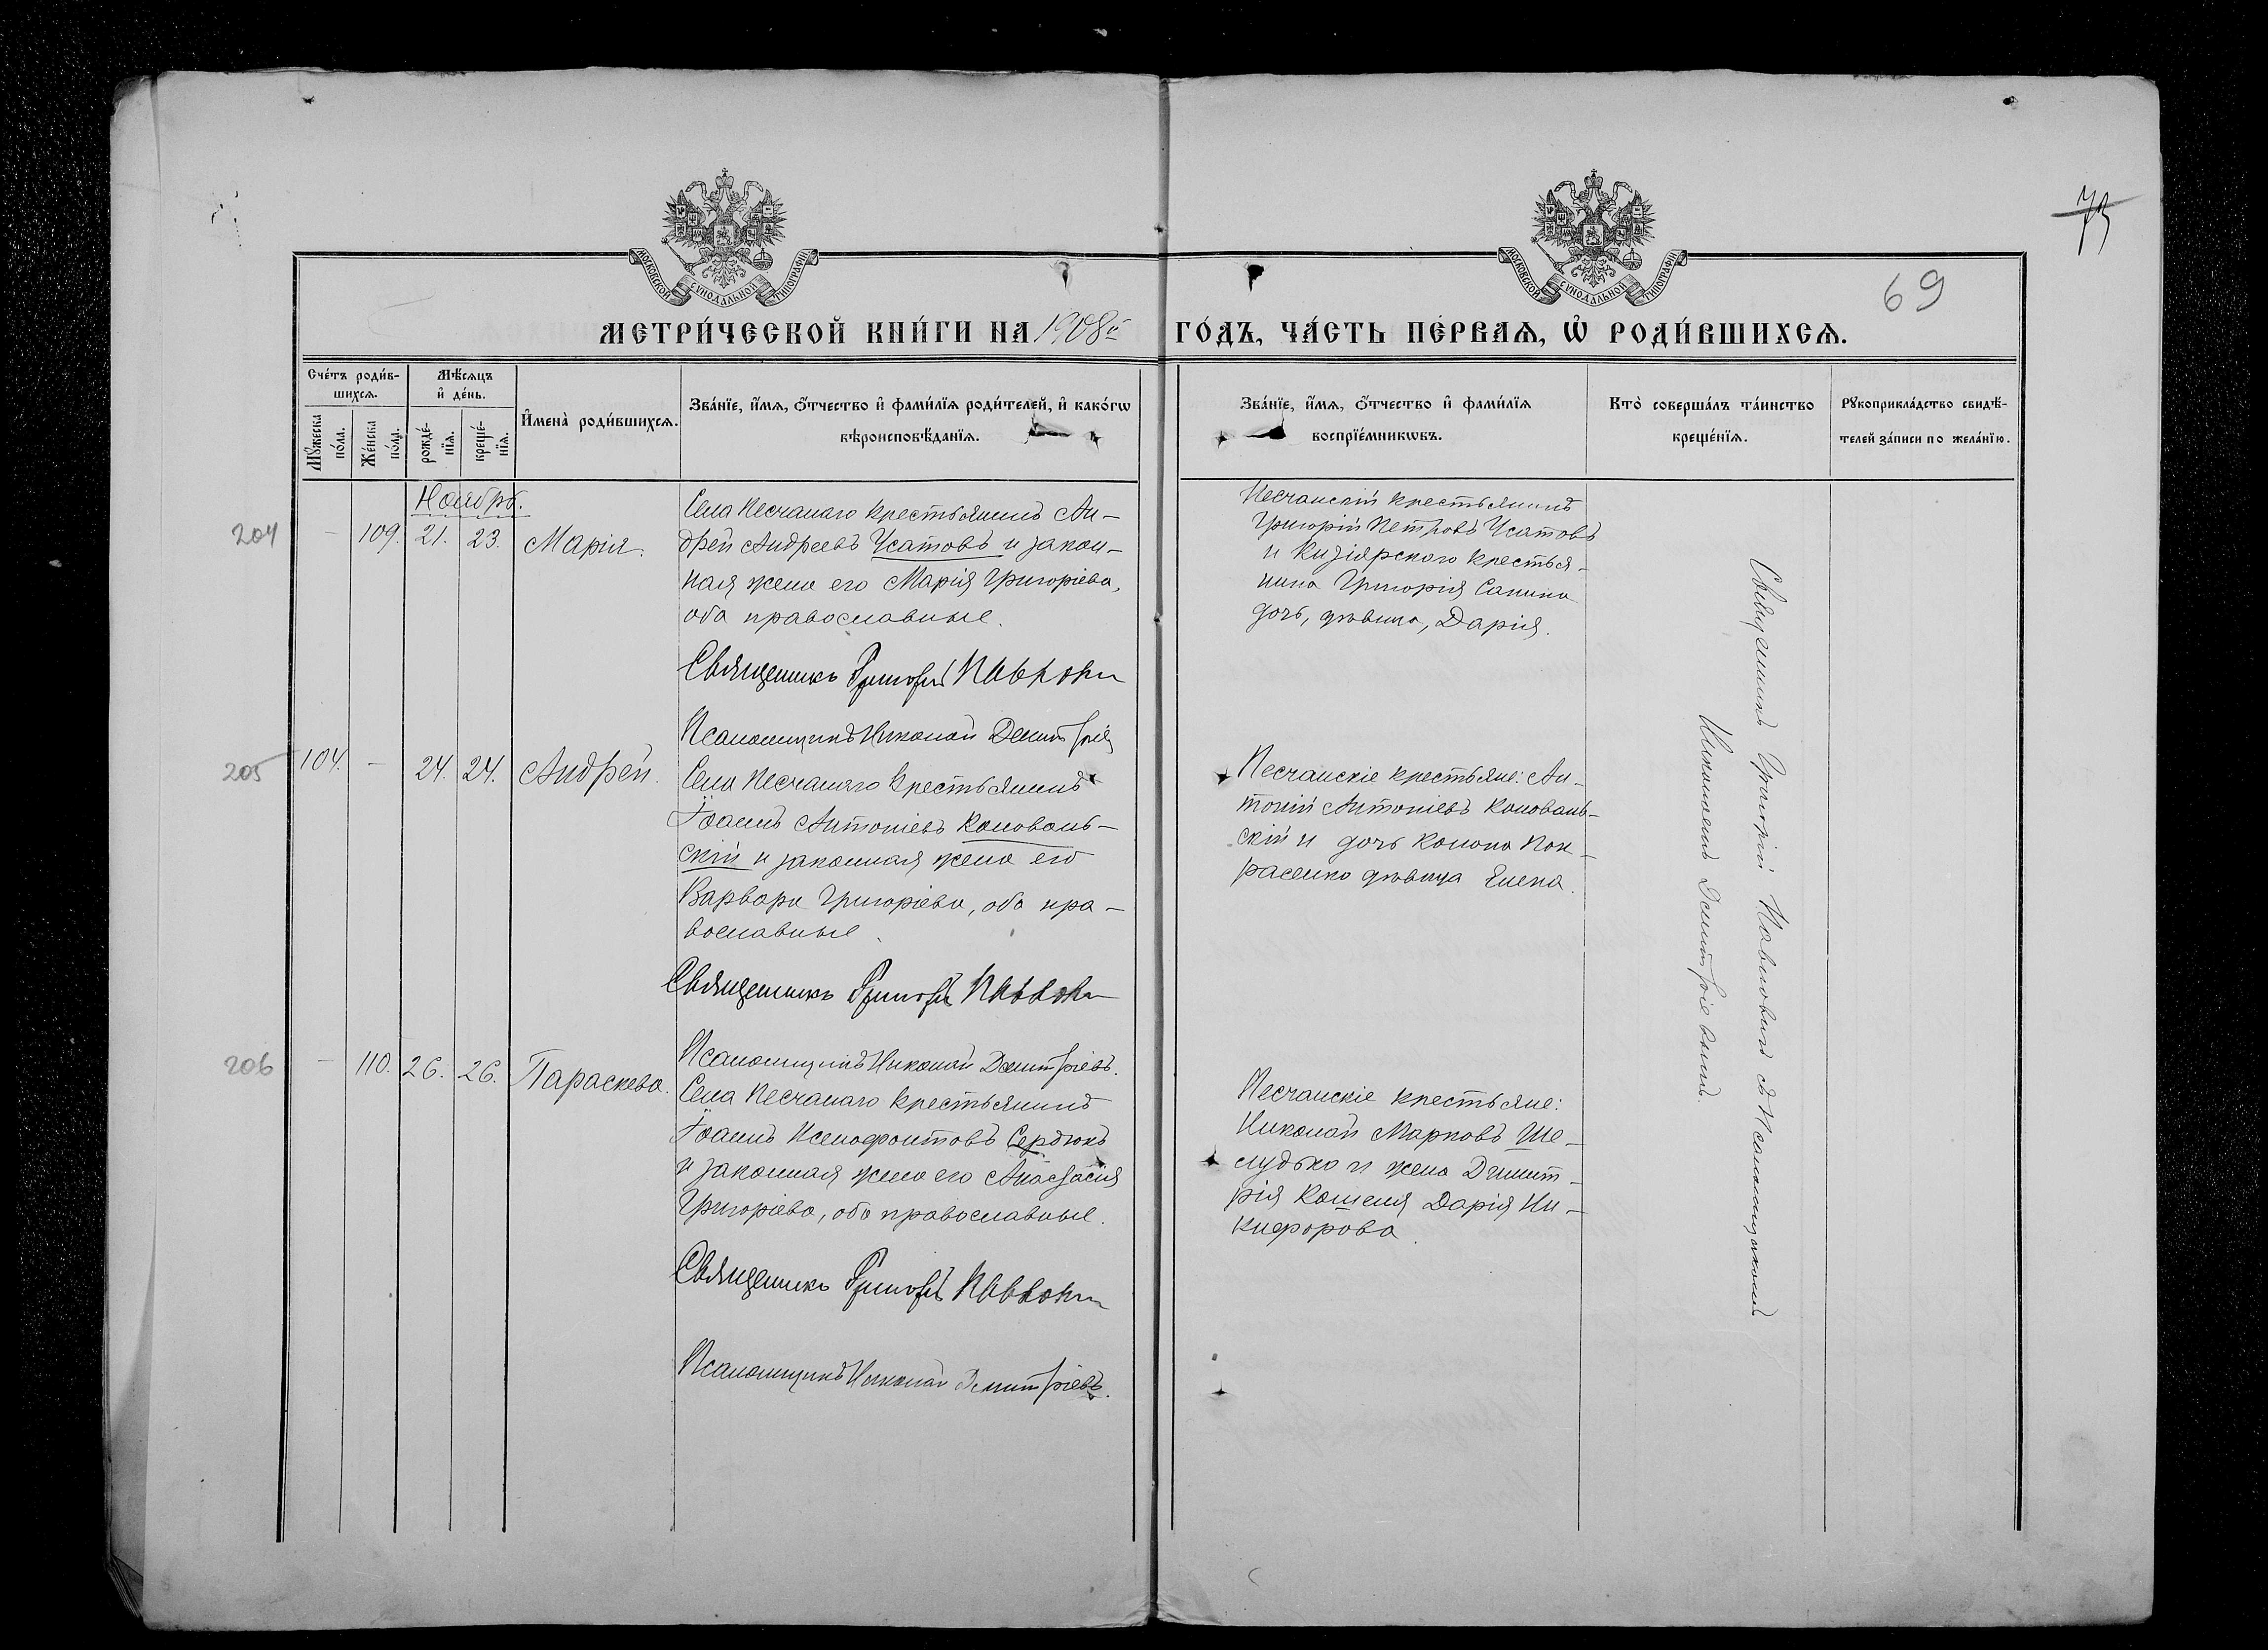 73
69
МОСКОВСКОЙ СѴНОДАЛЬНОЙ ТИПОГРАФІИ
МОСКОВСКОЙ СѴНОДАЛЬНОЙ ТИПОГРАФІИ
МЕТРИ́ЧЕСКОЙ КНИ́ГИ НА 1908й ГО́ДЪ, ЧА́СТЬ ПЕ́РВАѦ, Ѽ РОДИ́ВШИХСѦ.
Сче́тъ роди́в-
шихсѧ.
Мꙋ́жеска
по́ла.
Же́нска
по́ла.
Мѣ́сѧцъ
и҆ де́нь.
рожде́-
нїѧ.
креще́-
нїѧ.
И҆мена̀ роди́вшихсѧ.
Зва́нїе, и҆́мѧ, ѻ҆́тчество и҆ фами́лїѧ роди́телей, и҆ како́гѡ
вѣроисповѣ́данїѧ.
Зва́нїе, и҆́мѧ, ѻ҆́тчество и҆ фами́лїѧ
воспрїе́мникѡвъ.
Кто̀ соверша́лъ та́инство
креще́нїѧ.
Рꙋкоприкла́дство свидѣ́-
телей за́писи по жела́нїю.
Ноябрь.
204
— 109. 21. 23. Марія.
Села Песчанаго крестьянинъ Ан-
дрей Андреевъ Усатовъ и закон-
ная жена его Марія Григоріева,
оба православные.
Священникъ Григорій Павлови
Псаломщикъ Николай Димитрів
Песчанскій крестьянинъ
Григорій Петровъ Усатовъ
и Кизіярского крестья-
нина Григорія Санина
дочь, дѣвица, Дарія.
205
104. — 24. 24. Андрей.
Села Песчанаго крестьянинъ
Іоаннъ Антоніевъ Коноваль-
скій и законная жена его
Варвара Григоріева, оба пра-
вославные.
Священникъ Григорій Павлови
Псаломщикъ Николай Димитріевъ.
Песчанскіе крестьяне: Ан-
тоній Антоніевъ Коноваль-
скій и дочь Конона Пок-
расенко дѣвица Елена.
206
— 110. 26. 26. Параскева.
Села Песчанаго крестьянинъ
Іоаннъ Ксенофонтовъ Сердюкъ
и законная жена его Анастасія
Григоріева, оба православные.
Священникъ Григорій Павлови
Псаломщикъ Николай Димитріевъ.
Песчанскіе крестьяне:
Николай Марковъ Ше-
лудько и жена Димит-
рія Кошеля Дарія Ни-
кифорова.
Священникъ Григорій Павловичъ съ Псаломщикомъ
Николаемъ Димитріевымъ.